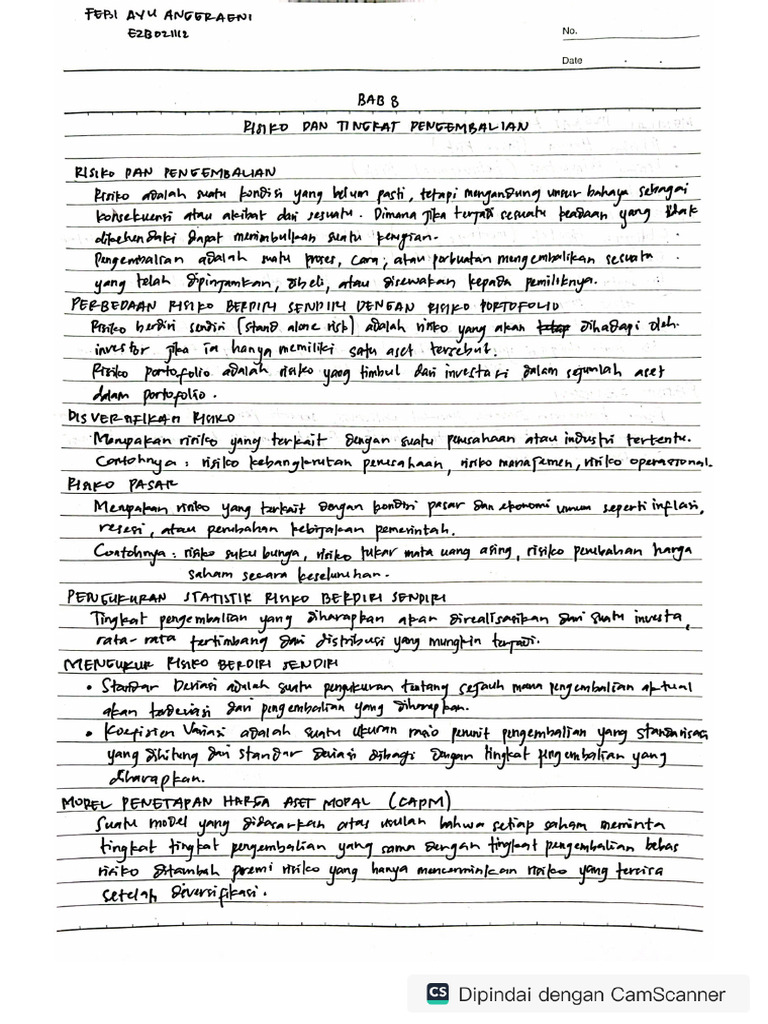 FEBI AYU ANGGRAENI
E2B021112
No.
Date
BAB 8
RISIKO DAN TINGKAT PENGEMBALIAN
RISIKO DAN PENGEMBALIAN
Risiko adalah suatu kondisi yang belum pasti, tetapi mengandung unsur bahaya sebagai
konsekuensi atau akibat dari sesuatu. Dimana jika terjadi sesuatu keadaan yang tidak
dikehendaki dapat menimbulkan suatu kerugian.
Pengembalian adalah suatu proses, cara, atau perbuatan mengembalikan sesuatu
yang telah dipinjamkan, dibeli, atau disewakan kepada pemiliknya.
PERBEDAAN RISIKO BERDIRI SENDIRI DENGAN RISIKO PORTOFOLIO
Risiko berdiri sendiri (stand alone risk) adalah risiko yang akan dihadapi oleh
investor jika ia hanya memiliki satu aset tersebut.
Risiko portofolio adalah risiko yang timbul dari investasi dalam sejumlah aset
dalam portofolio.
DISVERSIFIKASI RISIKO
Merupakan risiko yang terkait dengan suatu perusahaan atau industri tertentu.
Contohnya : risiko kebangkrutan perusahaan, risiko manajemen, risiko operasional.
RISIKO PASAR
Merupakan risiko yang terkait dengan kondisi pasar dan ekonomi umum seperti inflasi,
resesi, atau perubahan kebijakan pemerintah.
Contohnya : risiko suku bunga, risiko tukar mata uang asing, risiko perubahan harga
saham secara keseluruhan.
PENGUKURAN STATISTIK RISIKO BERDIRI SENDIRI
Tingkat pengembalian yang diharapkan akan direalisasikan dari suatu investa,
rata-rata tertimbang dari distribusi yang mungkin terjadi.
MENGUKUR RISIKO BERDIRI SENDIRI
• Standar Deviasi adalah suatu pengukuran tentang sejauh mana pengembalian aktual
akan terdeviasi dari pengembalian yang diharapkan.
• Koefisien Variasi adalah suatu ukuran perunit pengembalian yang standarisasi
yang dihitung dari standar deviasi dibagi dengan tingkat pengembalian yang
diharapkan.
MODEL PENETAPAN HARGA ASET MODAL (CAPM)
Suatu model yang didasarkan atas usulan bahwa setiap saham meminta
tingkat tingkat pengembalian yang sama dengan tingkat pengembalian bebas
risiko ditambah premi risiko yang hanya mencerminkan risiko yang tersisa
setelah diversifikasi.
CS Dipindai dengan CamScanner